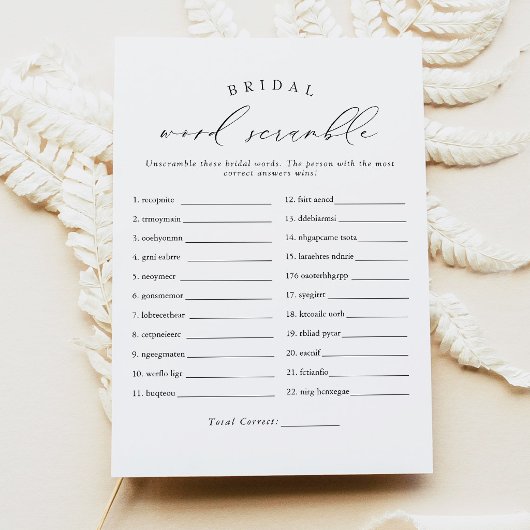 BRIDAL
word scramble
Unscramble these bridal words. The person with the most
correct answers wins!
1. recopnite
2. trmoymxin
3. ooehyonmn
4. grni eabrre
5. neoymecr
6. gonsmemor
7. lobtecethear
8. cetpneieerc
9. ngeegmaten
10. werflo ligr
11. buqteou
12. fsirt aencd
13. ddehiarmsi
14. nhgapcame tsota
15. laraehtes ndnrie
176 oaoterhhgrpp
17. syegirtt
18. ktcoailc uorh
19. rbliad pytar
20. eacnif
21. fctianfio
22. nirg hcnxegae
Total Correct: